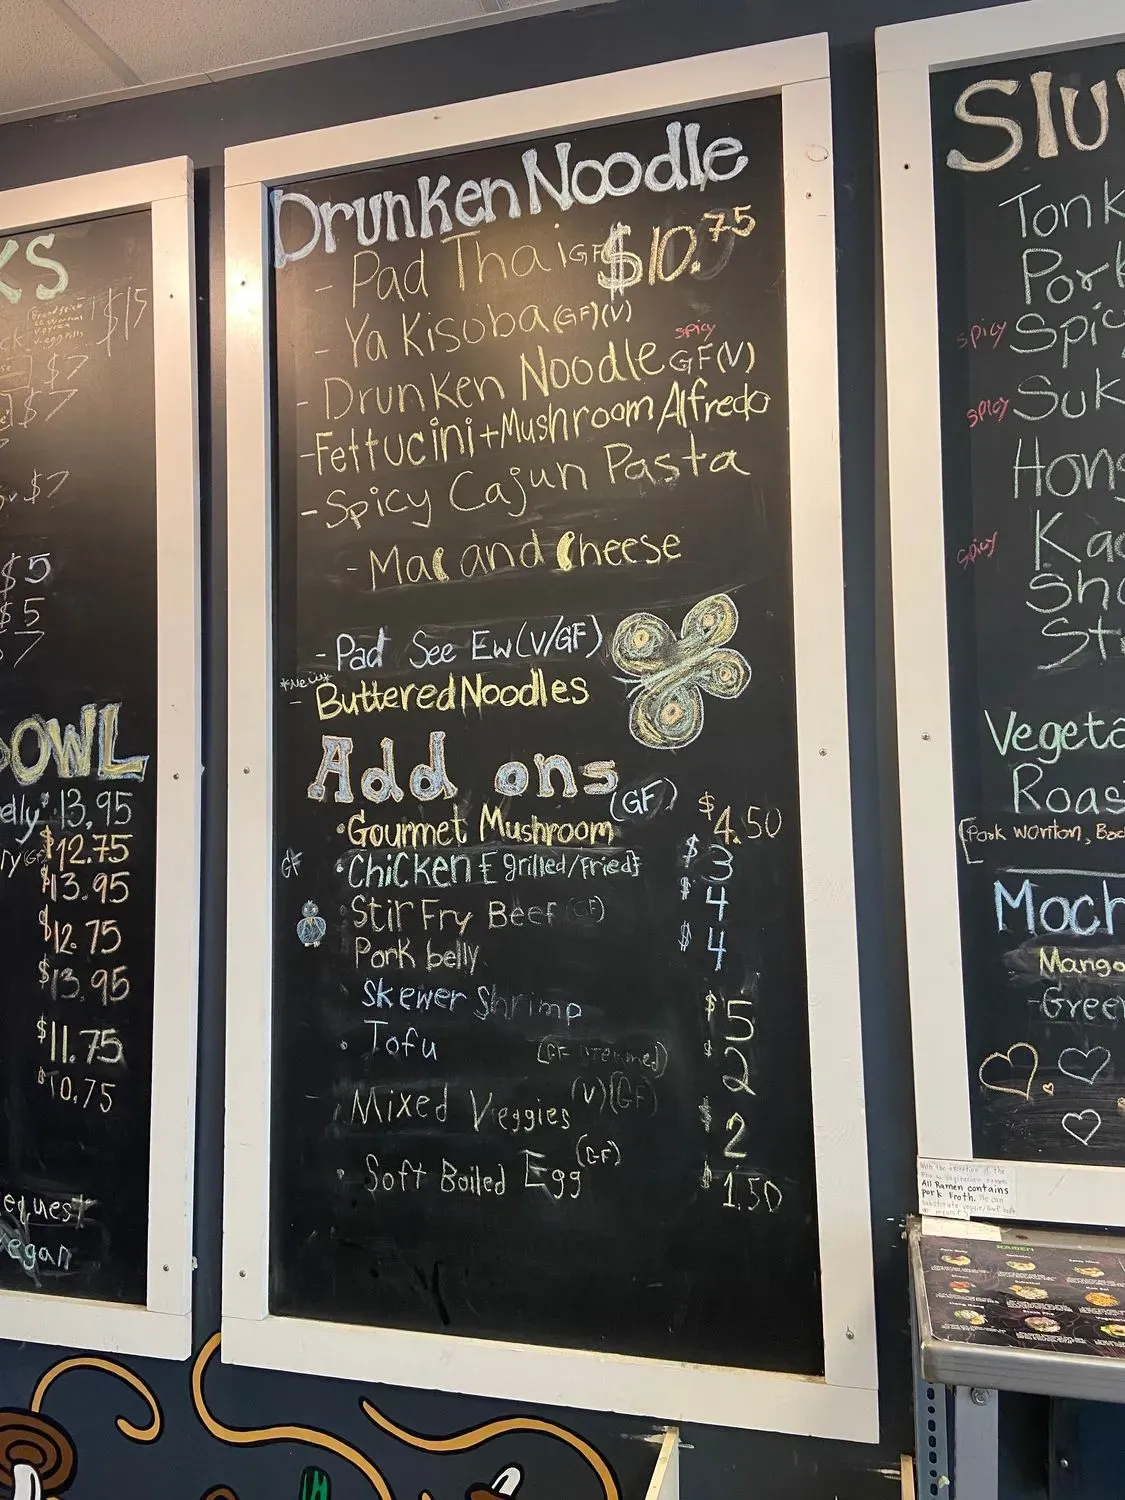 KS
$15
$7
$7
$7
$5
$5
7
OWL
elly 13.95
$12.75
$13.95
$12.75
$13.95
$11.75
$10.75
equest
egan
Drunken Noodle
- Pad Thai GF $10.75
- Ya Kisoba (GF)(V)
spicy
- Drunken Noodle GF(V)
- Fettucini + Mushroom Alfredo
- Spicy Cajun Pasta
- Mac and Cheese
- Pad See Ew (V/GF)
*New*
- Buttered Noodles
Add ons
• Gourmet Mushroom (GF) $4.50
GF • Chicken {grilled/Fried} $3
Stir Fry Beef (GF) $4
Pork belly $4
Skewer Shrimp $5
• Tofu (GF Steamed) $2
- Mixed Veggies (V)(GF) $2
• Soft Boiled Egg (GF) $1.50
Slu
Tonk
Pork
spicy Spic
spicy Suk
Hong
spicy Ka
Sho
St
Vegeta
Roas
[Pork wonton, Ba
Moch
Mango
-Green
With the exception of the
All Ramen contains
Pork Froth. We can
substitute veggie/Beef broth
RAMEN